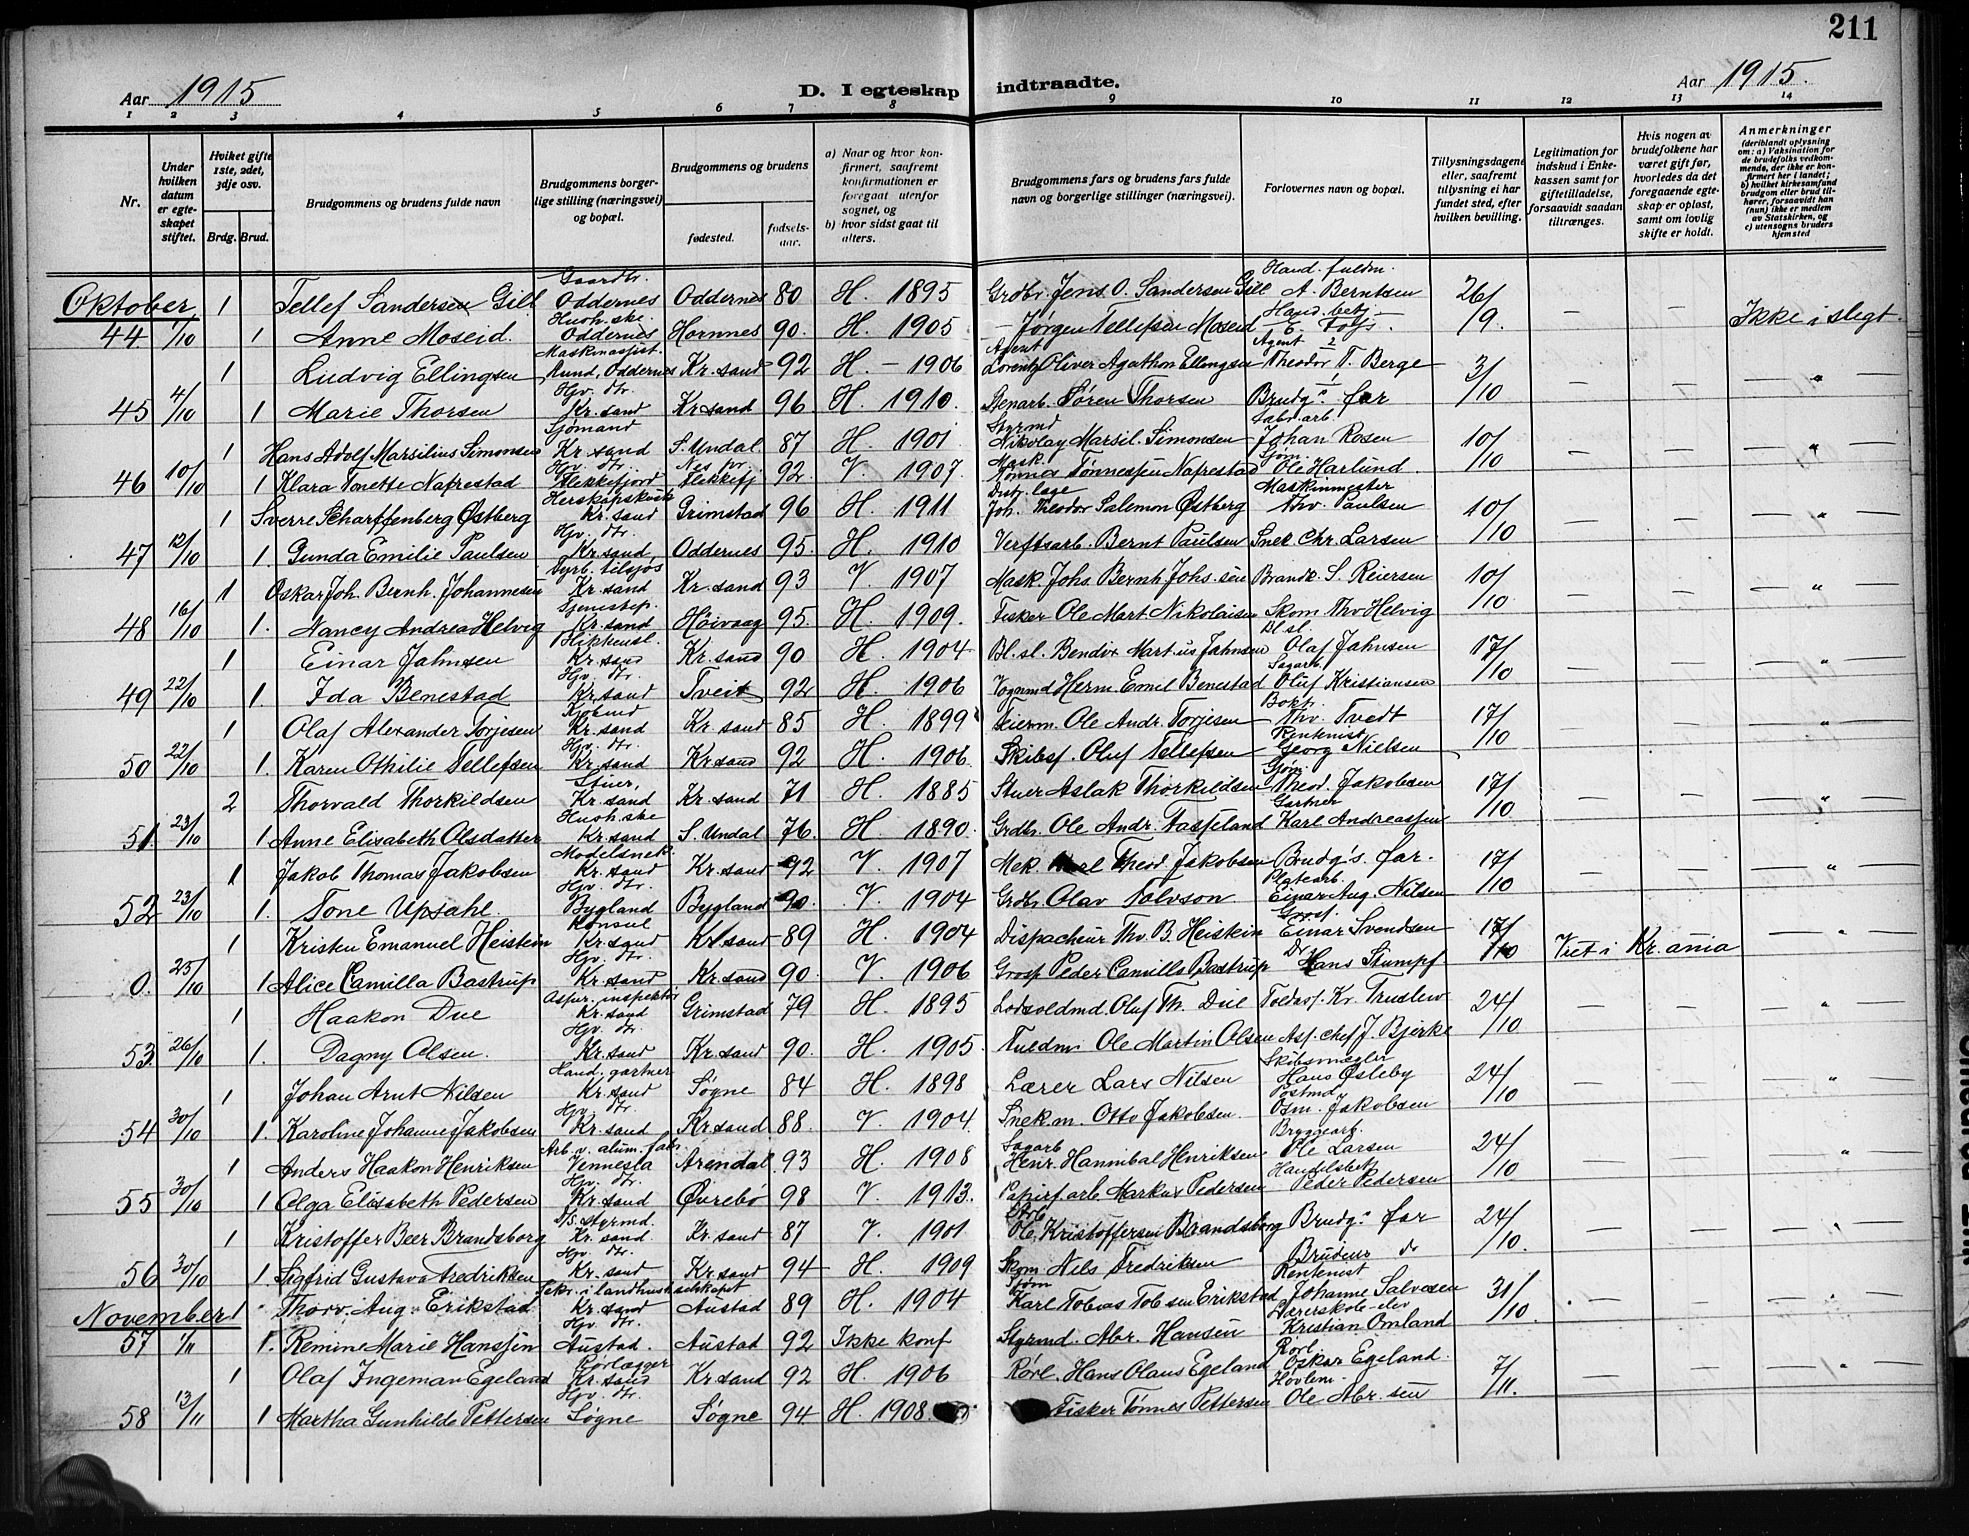 211
Aar 1915 D. I egteskap indtraadte. Aar 1915.
1 2 3 4 5 6 7 8 9 10 11 12 13 14
Nr.
Under hvilken datum er egteskapet stiftet.
Hvilket gifte 1ste, 2det, 3dje osv.
Brdg. Brud.
Brudgommens og brudens fulde navn
Brudgommens borgerlige stilling (næringsvei) og bopæl.
Brudgommens og brudens
fødested. fødselsaar.
a) Naar og hvor konfirmert, saafremt konfirmationen er foregaat utenfor sognet, og
b) hvor sidst gaat til alters.
Brudgommens fars og brudens fars fulde navn og borgerlige stillinger (næringsvei).
Forlovernes navn og bopæl.
Tillysningsdagene eller, saafremt tillysning ei har fundet sted, efter hvilken bevilling.
Legitimation for indskud i Enkekassen samt for giftetilladelse, forsaavidt saadan tiltrænges.
Hvis nogen av brudefolkene har været gift før, hvorledes da det foregaaende egteskap er opløst, samt om lovlig skifte er holdt.
Anmerkninger (deriblandt oplysning om: a) Vaksination for de brudefolks vedkommende, der ikke er konfirmert her i landet; b) hvilket kirkesamfund brudgom eller brud tilhører, forsaavidt han (hun) ikke er medlem av Statskirken, og c) utensogns bruders hjemsted
Oktober 1 Tellef Sandersen Gill Gaardbr. Oddernes Oddernes 80 H. 1895 Grdbr. Jens O. Sandersen Gill Hand. fuldm. A. Berntsen 26/9 — — Ikke i slegt.
44 1/10 1 Anne Moseid. Hush.ske. Oddernes Hornnes 90. H. 1905 — Jørgen Tellefsen Moseid Hand. betj.
1 Ludvig Ellingsen Maskinassist. Lund, Oddernes Kr.sand 92 H. — 1906 Agent Lorentz Oliver Agathon Ellingsen Agent Theodor T. Berge 3/10 — — "
45 4/10 1 Marie Thorsen Hjv. dtr. Kr.sand Kr sand 96 H. 1910. Stenarb. Sören Thorsen Brudg.s far
1 Hans Adolf Marsilius Simonsen Sjømand Kr. sand S. Undal. 87 H. 1901 Styrmd Nikolay Marsil. Simonsen Fabr. arb. Johan Rosen 10/10 — — "
46 10/10 1 Klara Tonette Nafrestad Hjv. dtr. Flekkefjord Nes pr. Flekkefj. 92 V. 1907. Mask. Tønnessen Nafrestad Sjøm. Ole Harlund.
1 Sverre Scharffenberg Østberg Kr. sand Grimstad 96 H. 1911 Distr. læge Joh. Theodor Salemon Østberg Maskinmester Thv. Paulsen 10/10 — — "
47 12/10 1. Gunda Emilie Paulsen Hjv. dtr. Kr.sand, Oddernes 95. H. 1910 Verftsarb. Bernt Paulsen Snek. Chr. Larsen
1 Oskar Joh. Bernh. Johannesen Fyrb. tilsjøs Kr.sand Kr.sand 93 V. 1907 Mask. Johs. Bernh. Johs.sen Brandk. S. Reiersen 10/10 — — "
48 16/10 1. Nancy Andrea Helvig Tjenestep. Kr.sand Høivaag 95. H. 1909. Fisker Ole Mart. Nikolaisen Skom. Thv Helvig
1 Einar Jahnsen Blikkensl. Kr.sand Kr.sand 90 H. 1904 Bl. sl. Bendix Martius Jahnsen Bl. sl. Olaf Jahnsen 17/10 — — "
49 22/10 1 Ida Benestad Hjv. dtr. Kr.sand Tveit 92 H. 1906 Vognmd Herm. Emil Benestad Sagarb. Oluf Kristiansen
1 Olaf Alexander Torjesen Kjøbmd Kr. sand Kr sand 85 H. 1899 Feierm. Ole Andr. Torjesen Thv. Tvedt 17/10 — — "
50 22/10 1. Karen Othilie Tellefsen Hjv. dtr. Kr. sand Kr sand 92 H. 1906. Skibsf. Oluf Tellefsen Rentenist Georg Nielsen
2 Thorvald Thorkildsen Stuer, Kr. sand Kr. sand 71 H. 1885 Stuer Aslak Thorkildsen Sjøm. Theod. Jakobsen 17/10 — — "
51. 23/10 1 Anne Elisabeth Olsdatter Hush.ske Kr.sand S. Undal 76. H 1890. Grdbr. Ole Andr. Faasseland Gartner Karl Andreassen
1 Jakob Thomas Jakobsen Modelsnek. Kr. sand Kr.sand 92 V. 1907 Mek. Theod. Jakobsen Brudg's far. 17/10 — — "
52 23/10 1. Tone Upsahl. Hjv. dtr. Bygland Bygland 90. V. 1904 Grdbr. Olav Tolvson Platearb. Einar Aug. Nilsen
1 Kristen Emanuel Heistein Konsul Kr.sand Kr sand 89 H. 1904 Dispacheur Thv. B. Heistein Gross. Einar Svendsen 17/10 Viet i Kr.ania — "
0. 25/10 1 Alice Camilla Bastrup Hjv. dtr. Kr. sand Kr.sand 90. V. 1906 Gross Peder Camillo Bastrup Dr. Hans Stumpf.
1 Haakon Due Aspir. inspektør Kr.sand Grimstad 79 H. 1895 Lodsoldmd. Oluf Th. Due Toldass. Kr. Truslew 24/10 — — "
53 26/10 1. Dagny Olsen. Hjv. dtr. Kr.sand Kr.sand 90. H. 1905. Fuldm. Ole Martin Olsen Ass. chef J. Bjerke
1 Johan Arnt Nilsen Hand. gartner Kr. sand Søgne 84 H. 1898 Lærer Lars Nilsen Skibsmægler Hans Østeby 24/10 — — "
54 30/10 1. Karoline Johanne Jakobsen Hjv. dtr. Kr. sand Kr sand 88. V. 1904. Snek.m. Otto Jakobsen. Postmd Osm. Jakobsen
1 Anders Haakon Henriksen Arb. v. alum. fabr. Vennesla Arendal 93 H. 1908 Sagarb Henr. Hannibal Henriksen Bryggearb. Ole Larsen 24/10 — — "
55 30/10 1 Olga Elisabeth Pedersen Hjv. dtr. Kr. sand Øvrebø 98 V. 1913. Papirf. arb. Markus Pedersen Handelsbetj. Peder Pedersen
1 Kristoffer Beer Brandsborg D/S. styrmd. Kr. sand Kr. sand 87 V. 1901 Arb Ole Kristoffersen Brandsborg Brudg.s far 24/10. — — "
56 30/10 1. Sigfrid Gustava Fredriksen Hjv. dtr. Kr. sand Kr.sand 94 H. 1909 Skom Nils Fredriksen Brudens do
November 1 Thorv. Aug. Erikstad Sekr. i landhush.selskapet Kr.sand Austad 89 H. 1904 Sjøm Karl Tobias Tobsen Erikstad Rentenist Johanne Salvesen 31/10. — — "
57 1/11 1. Remine Marie Hanssen Hjv. dtr. Austad. Austad 92 Ikke konf Styrmd. Abr. Hansen Lærerskole-elev Kristian Omland
1 Olaf Ingeman Egeland Rørlægger Kr. sand Kr sand 92 H. 1906 Rørl. Hans Olaus Egeland Rörl Oskar Egeland. 7/11. — — "
58 13/11 1 Martha Gunhilde Pettersen Hjv. dtr. Søgne Søgne 94 H. 1908 Fisker Tønnes Pettersen Høvlem. Ole Abr.sen